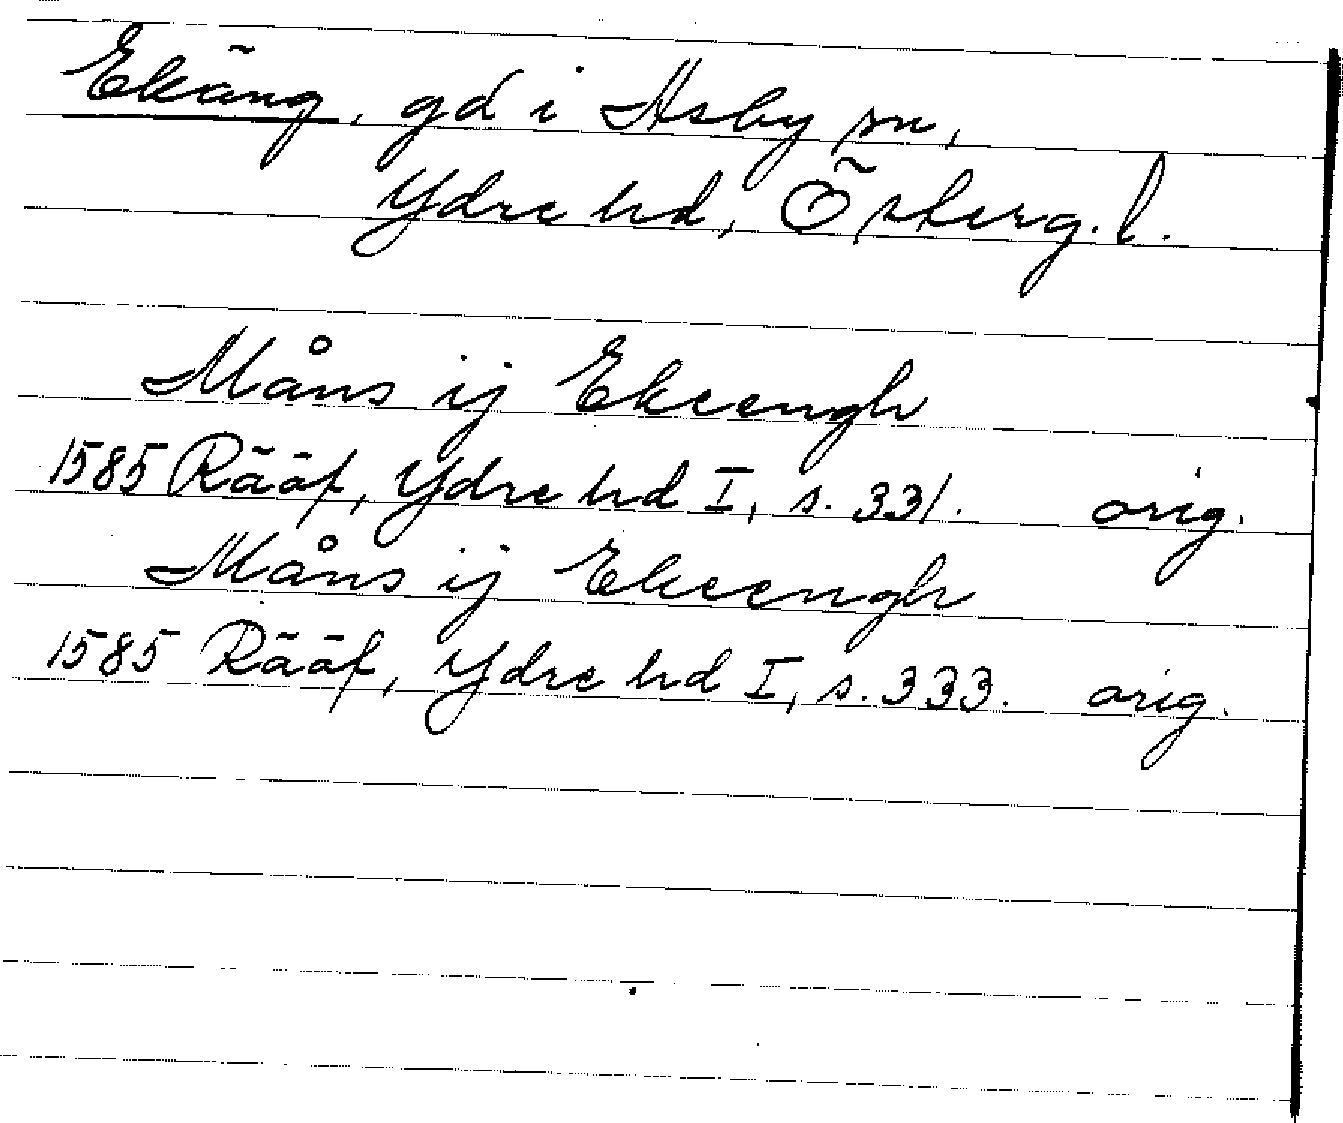 Ekäng, gd i Asby sn,
Ydre hd, Österg. l.
Måns ij Ekeengh
1585 Rääf, Ydre hd I, s. 331. orig.
Måns ij Ekeengh
1585 Rääf, Ydre hd I, s. 333. orig.